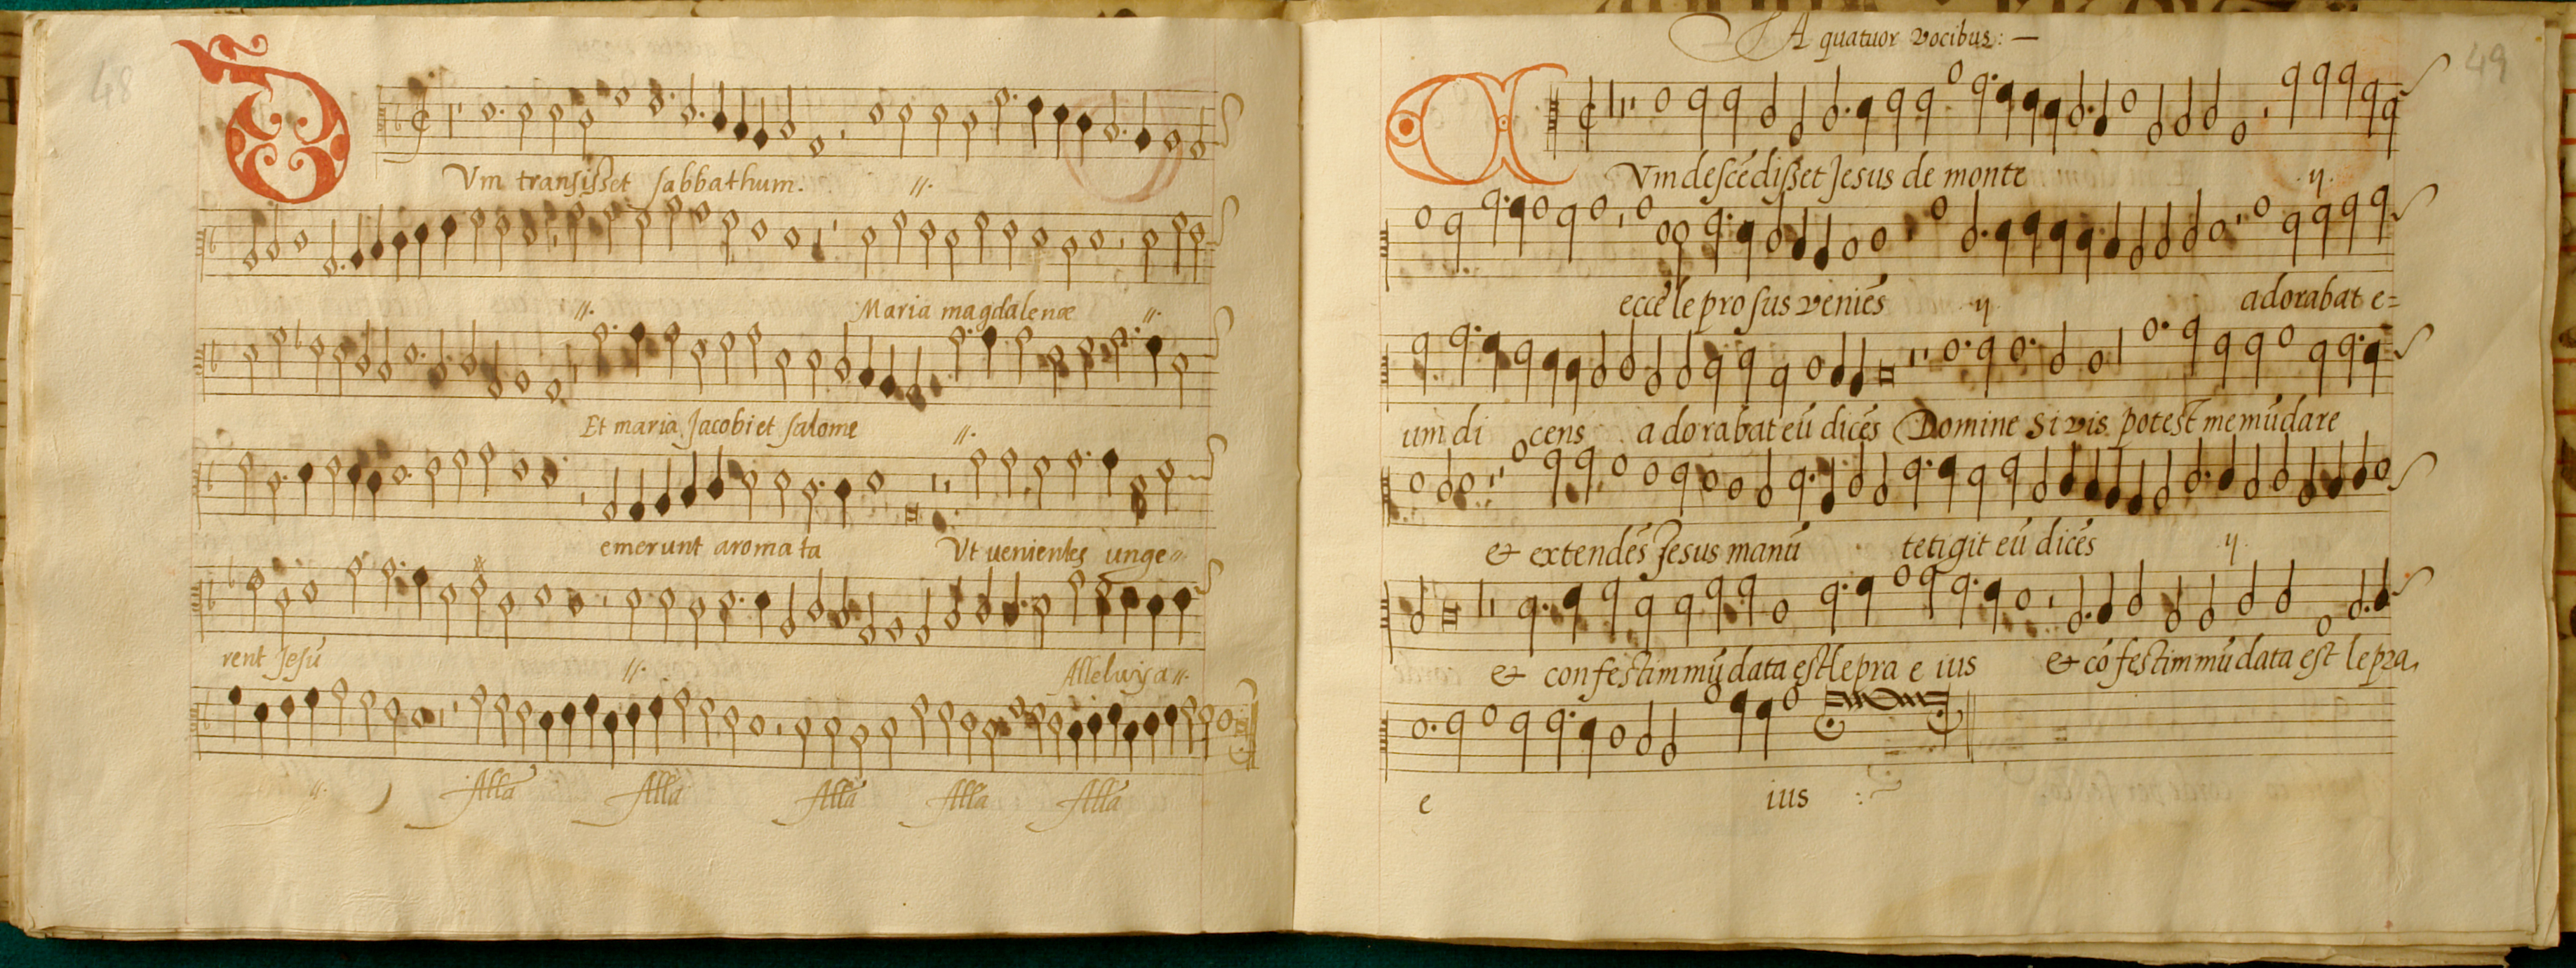 48
DVm transisset sabbathum. //.
//. Maria magdalenæ //.
Et maria Jacobi et salome //.
emerunt aromata Vt uenientes unge=
rent Jesū //. Alleluya //.
//. Alla Alla Alla Alla Alla
A quatuor vocibus: —
49
CVm descēdisset Jesus de monte ij.
ecce leprosus veniēs ij. adorabat e=
um dicens adorabat eū dicēs Domine si vis potest me mūdare
& extendēs Jesus manū tetigit eū dicēs ij.
& confestim mūdata est lepra eius & cōfestim mūdata est lepra,
e ius :~